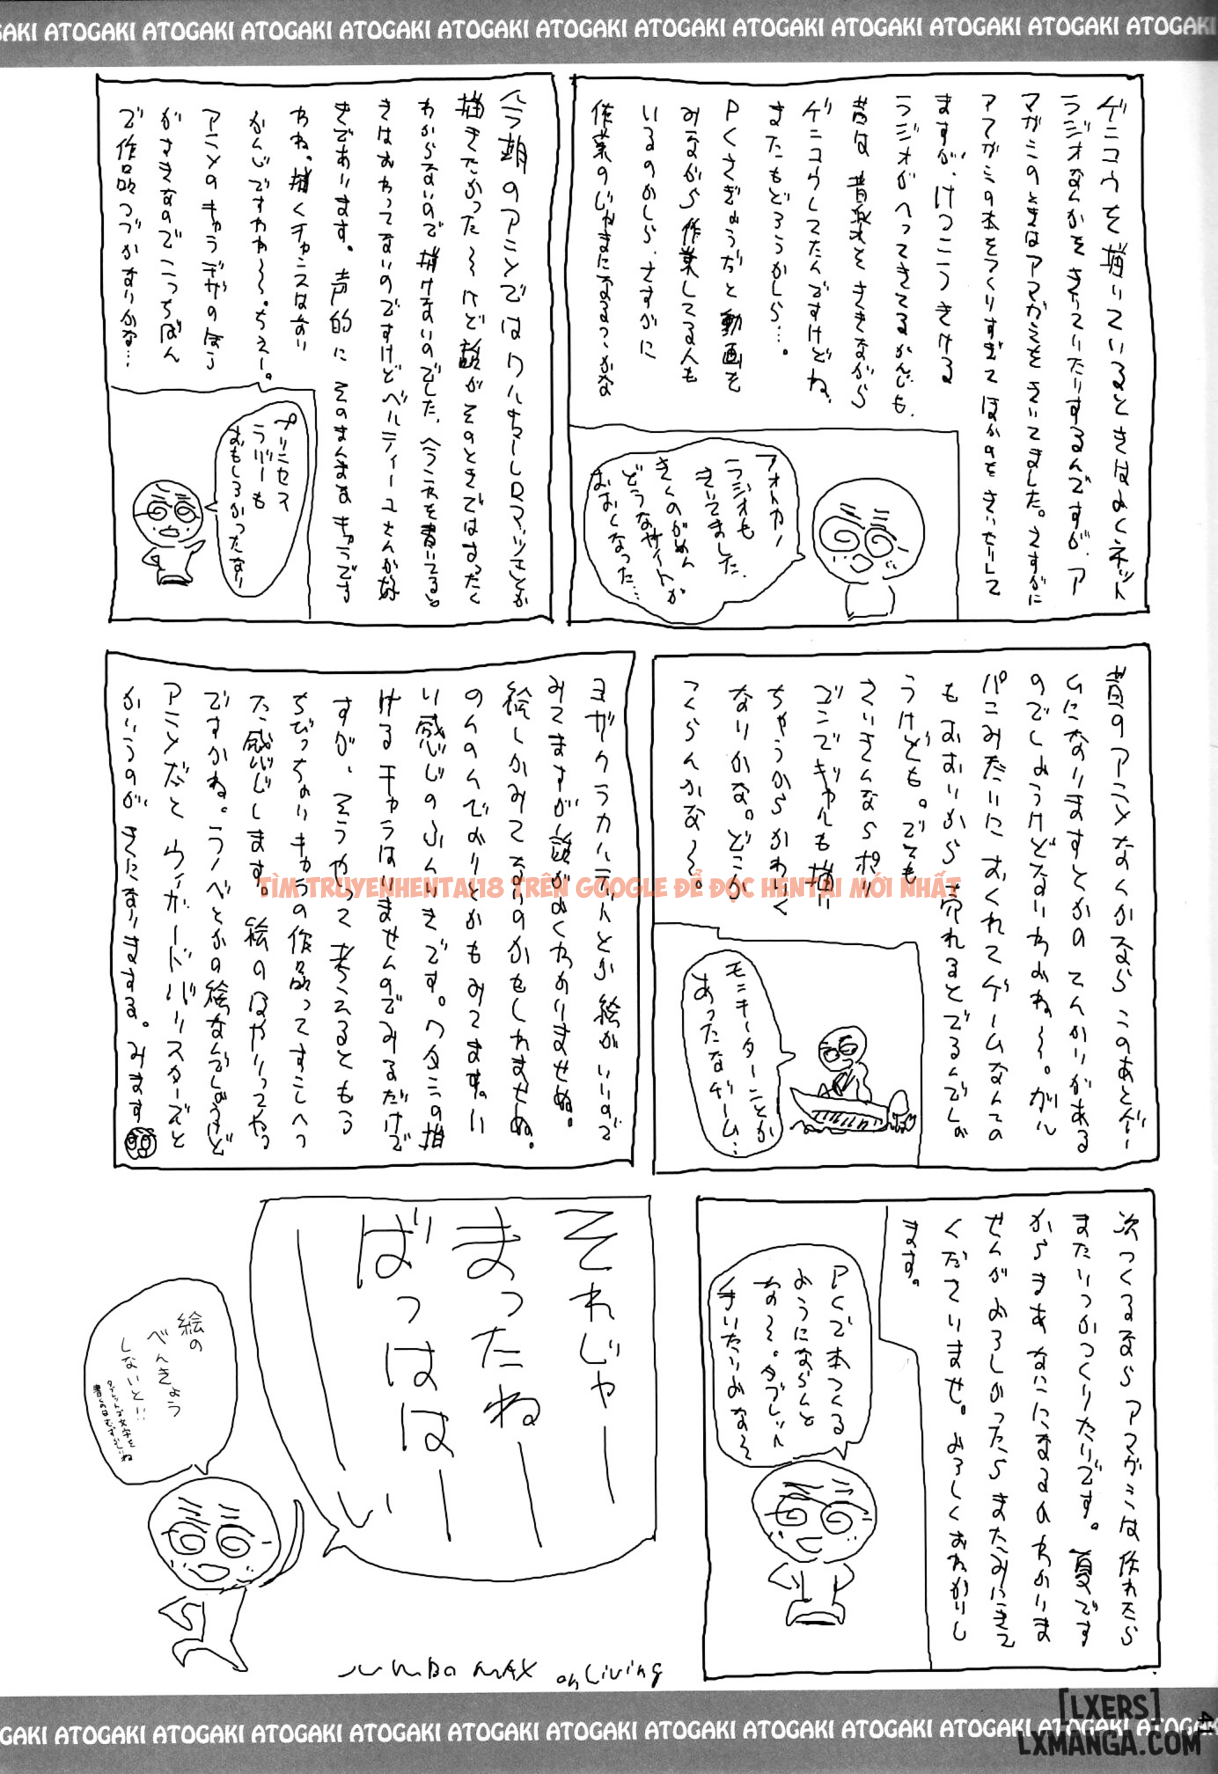 ATOGAKI ATOGAKI ATOGAKI ATOGAKI ATOGAKI ATOGAKI ATOGAKI ATOGAKI ATOGAKI ATOGAKI ATOGAKI
ゲンコウを描いているときはよくネット
ラジオなんかをきいていたりするんですが、ア
マガミのときはアマガミをきいてました。さすがに
アマガミの本をつくりすぎてほかのをきいたりして
ますが、けっこうきける
ラジオがへってきてるかんじも、
昔は音楽とききながら
ゲンコウしてたんですけどね、
またもどろうかしら…。
PCさぎょうだと動画を
みながら作業してる人も
いるのかしら、さすがに
作業のじゃまになるっっかな
フォトカノ
ラジオも
きいてました、
きくのがめん
どうなサイトが
おおくなった…
今期のアニメではワルキューレロマンツェとか
描きたかった〜けど話がそのときではまったく
わからないので描けないのでした、
きはおわってないのですけどベルティーユさんが好
きであります。声的にそのまんまなキャラです
わね。描くチャンスはない
かんじですわね〜。ちぇー。
アニメのキャラデザのほう
がすきなのでこっちばん
で作品つづかないかな…
プリンセス
ラバーも
おもしろかったなり
昔のアニメなんかなら このあとゲー
ムになりますとかの てんかいがある
のでしょうけどないわよね〜。ガル
パンみたいに おくれてゲームなんての
もおそいから 売れるとでるんでしょ
うけども。でも
さいきんならポリ
ゴンでギャルも描い
ちゃうからかわいく
なりかな。どこか
つくらんかな〜。
モンキーターンとか
あったなゲーム…
ヨザクラカルテットとか 絵がいいので
みてますが話がよくわかりませぬ。
絵しかみてないのかもしれませぬ。
のんのんびよりとかもみてます。い
い感じのふんいきです。ワタシの描
ける キャラはいませんのでみるだけで
すが、そうやって考えるともう
ちびっちょいキャラの作品ってすこしへっ
た感じします。絵のはやりってやつ
ですかね。ラノベとかの絵なんでしょうけど
アニメだと ウィザードバリスターズんと
かいうのが きになりまする。みます
TÌM TRUYENHENTAI18 TRÊN GOOGLE ĐỂ ĐỌC HENTAI MỚI NHẤT
次つくるなら アマガミは作れたら
またいつかつくりたいです。夏です
からまあなにになるのかわかりま
せんが よろしかったらまたみにきて
くださいませ。よろしくおねがいし
ます。
PCで本つくる
ようにならんと
な〜。タブレット
それじゃー
まったねー
ばっはは
ーーーい
絵の
べんきょう
しないと!!
JUMBO MAX on Living
[LXERS]
LXMANGA.COM
41
OGAKI ATOGAKI ATOGAKI ATOGAKI ATOGAKI ATOGAKI ATOGAKI ATOGAKI ATOGAKI ATOGAKI ATOGAKI ATOGAKI